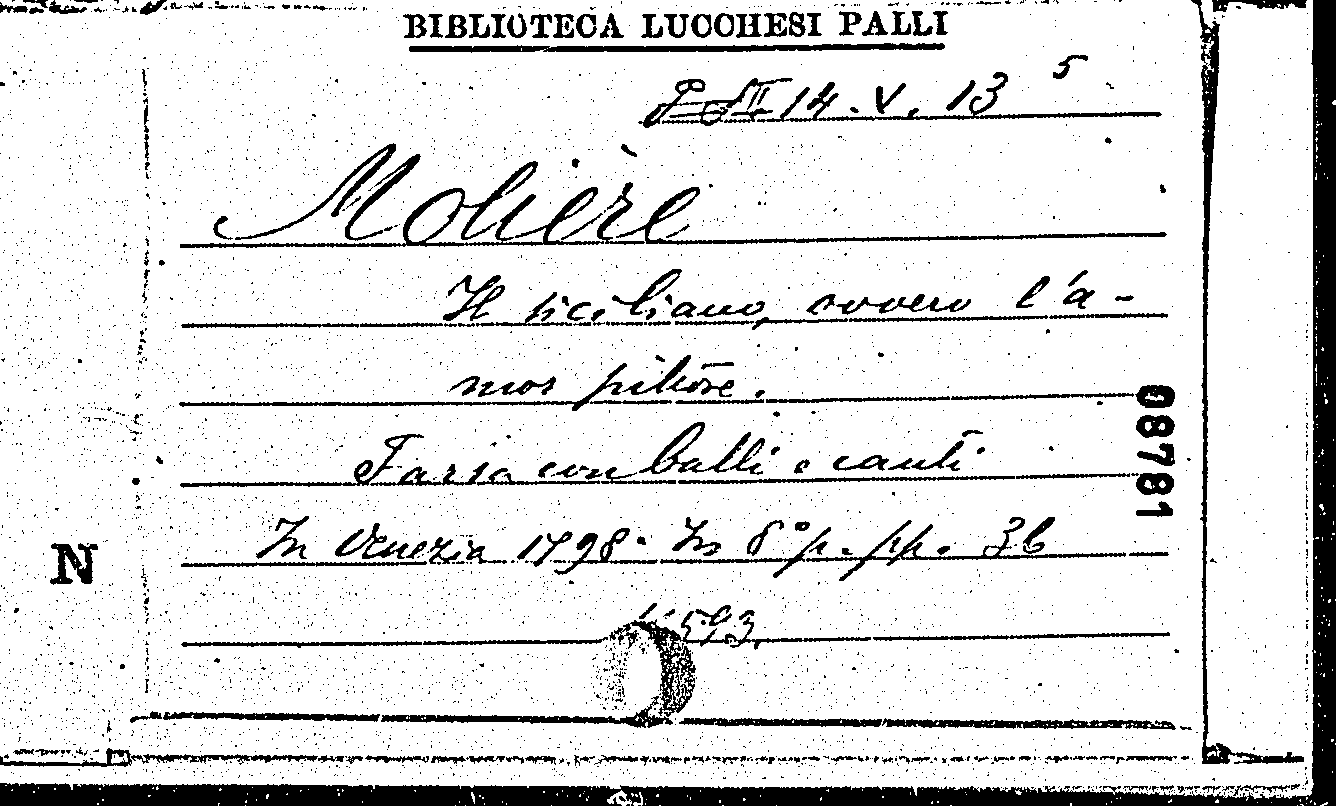 BIBLIOTECA LUCCHESI PALLI
14. V. 13 5
Molière
Il siciliano, ovvero l'a-
mor pittore.
Farsa con balli e canti
In Venezia 1798. In 8° p. pp. 36
593
08781
N